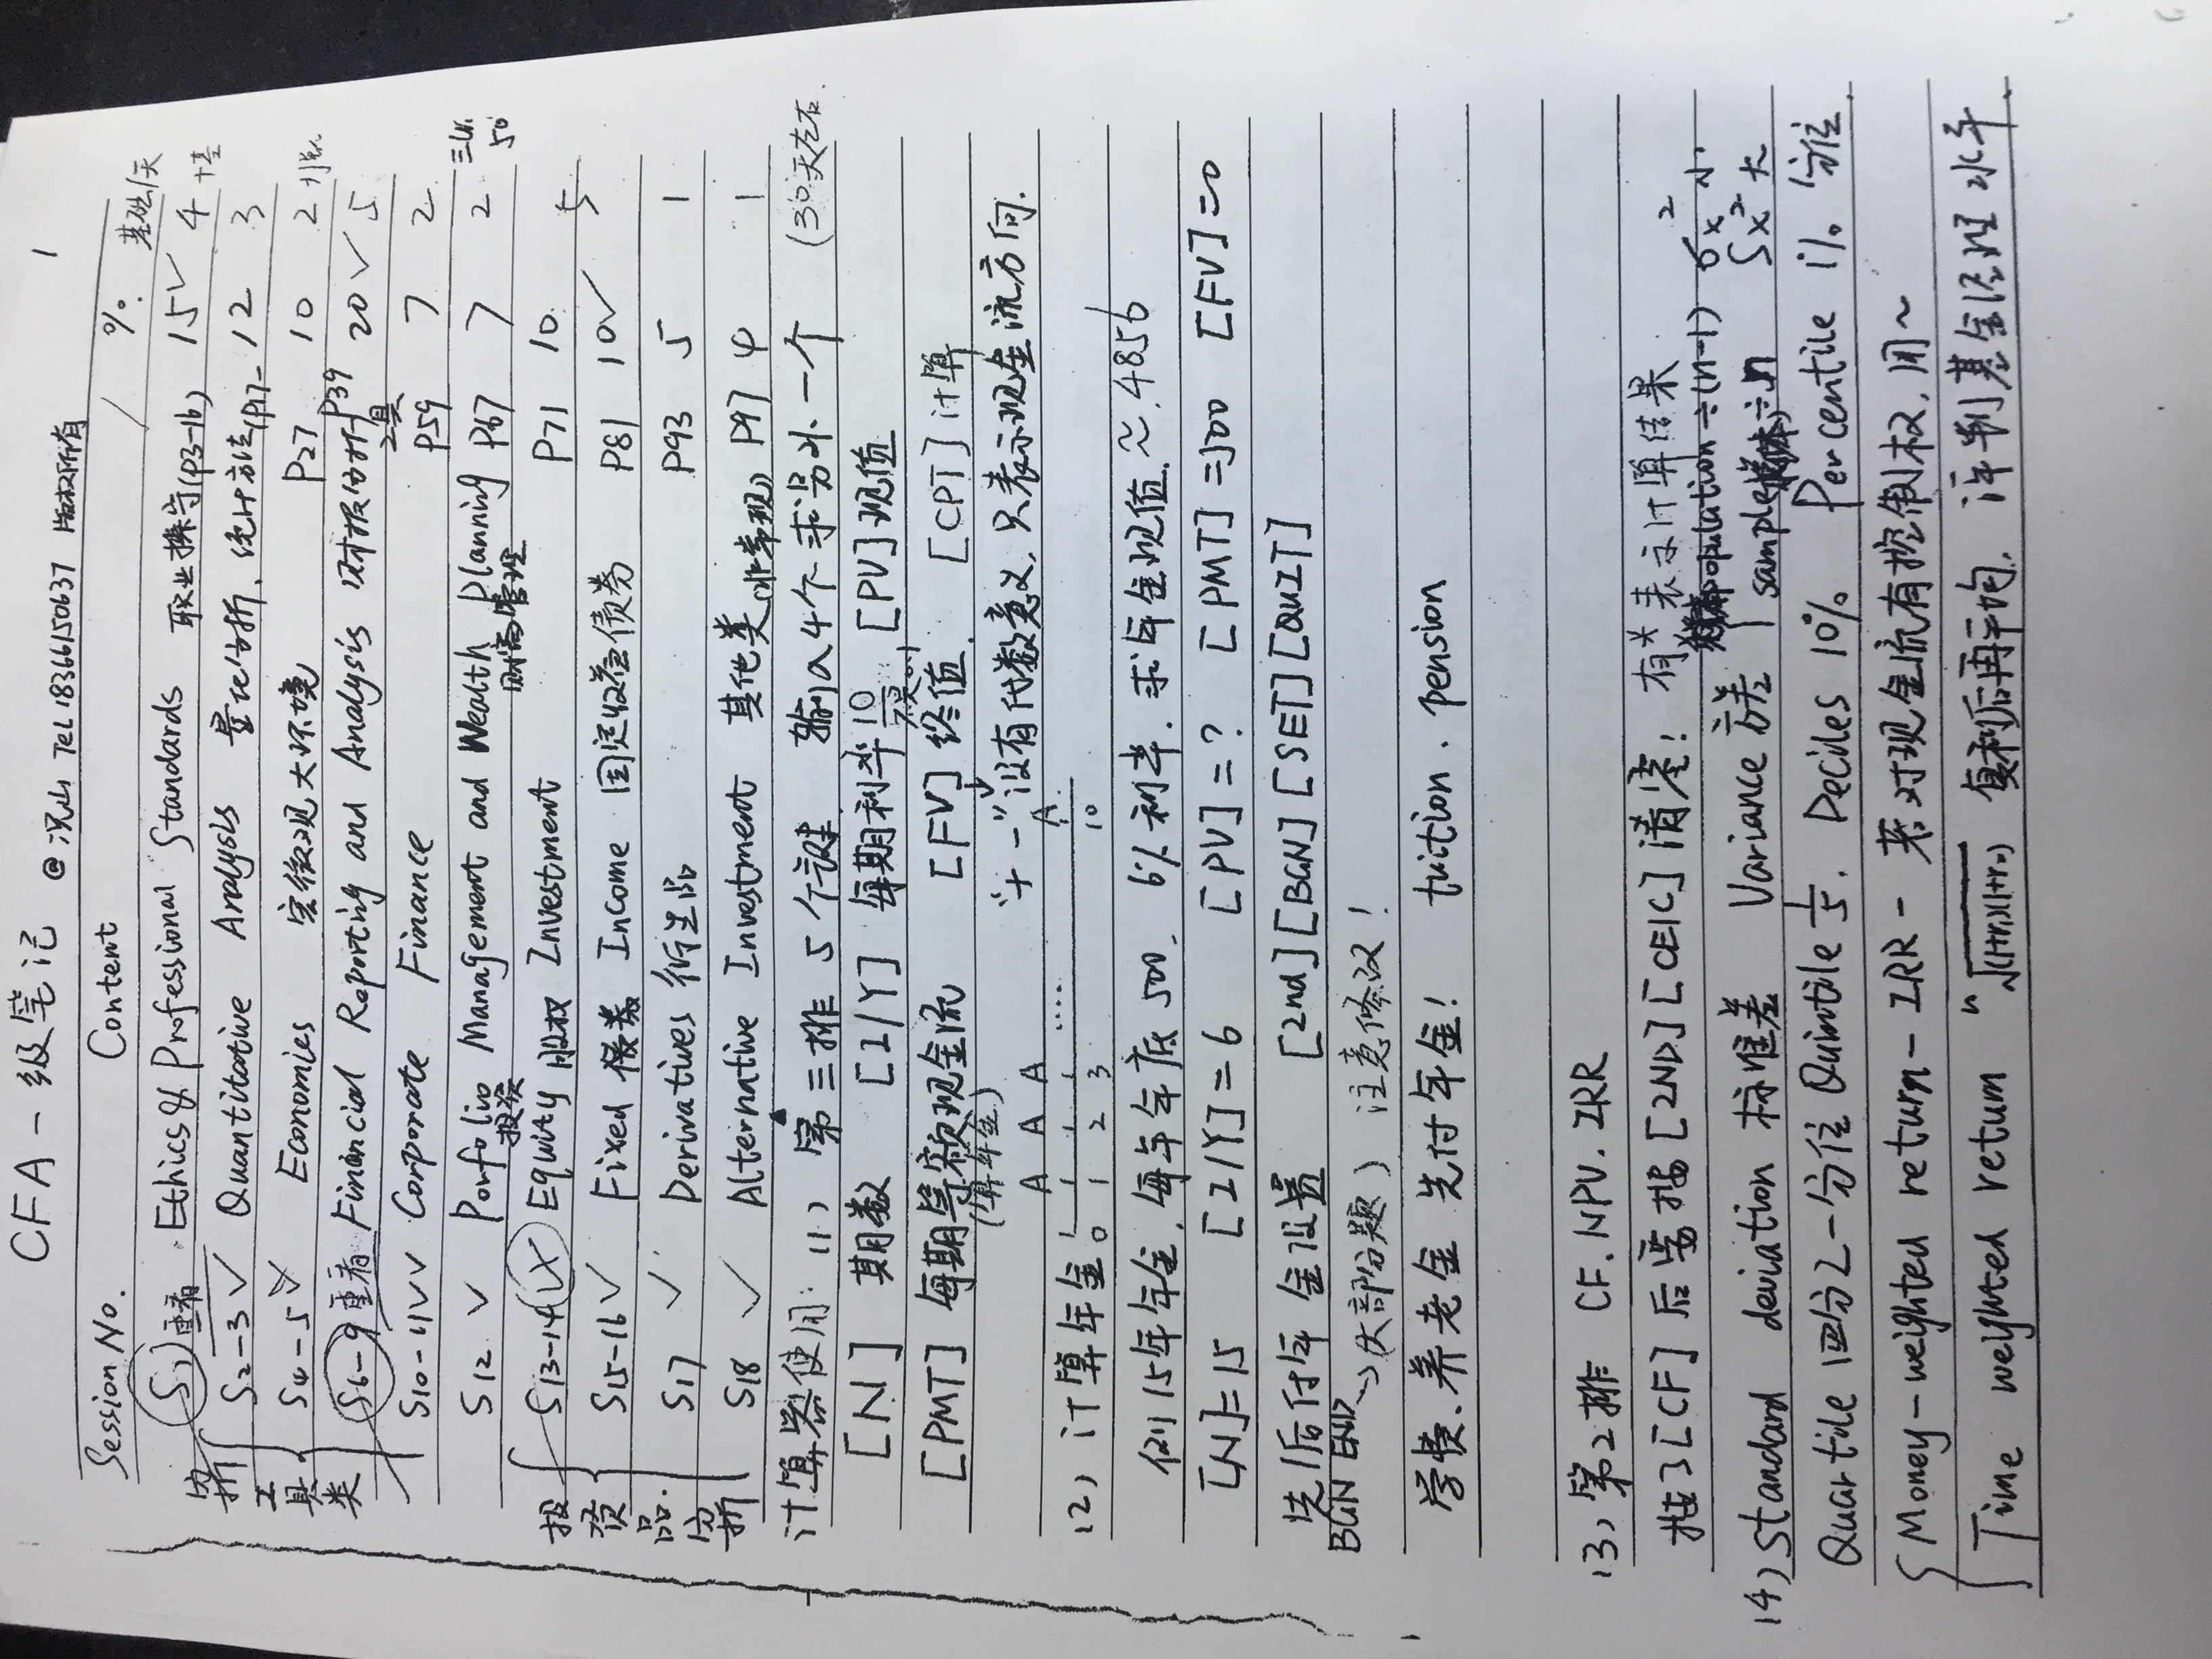 CFA 一级笔记 @况山 Tel 18366150637 版权所有 1
Session No. Content %. 基础/天
S1 重看 Ethics & Professional Standards 职业操守(P3-16) 15✓ 4 +基
S2-3 ✓ Quantitative Analysis 量化分析、统计方法(P17- 12 3
S4-5 Economics 宏微观大环境 P27 10 2
S6-9 重看 Financial Reporting and Analysis 财报分析 P39 20✓ 5
工具
S10-11 ✓✓ Corporate Finance P59 7 2
S12 ✓ Porfolio Management and Wealth Planning P67 7 2
投资 财富管理
S13-14 Equity 股权 Investment P71 10 5
S15-16 ✓ Fixed Income 固定收益债券 P81 10✓
S17 ✓ Derivatives 衍生品 P93 5 1
S18 ✓ Alternative Investment 其他类(非常规) P97 4 1
分析工具类
投资品分析
计算器使用: (1) 第三排 5个键 输入4个求另外一个 (30天左右.
[N] 期数 [I/Y] 每期利率10 [PV]现值
[PMT] 每期等额现金流 [FV]终值. [CPT]计算
(算年金) "+ -"没有代数意义,只表示现金流方向.
A A A ..... A
(2) 计算年金 0 1 2 3 10
例) 15年年金,每年年底500. 6%利率. 求年金现值 ≈ 4856
[N]=15 [I/Y]=6 [PV]=? [PMT]=500 [FV]=0
先/后付年金设置 [2nd][BGN][SET][QUIT]
BGN END→(大部分题) 注意修改!
学费、养老金 先付年金! tuition. pension
(3) 第2排 CF. NPV. IRR
按了[CF]后要按[2ND][CE/C]清零! 有关表示计算结果
(4) Standard deviation 标准差 Variance 方差 population÷(n-1) σx² 小
sample÷n Sx² 大
Quartile 四分之一分位 Quintile 1/5. Deciles 10%. Percentile 1%分位.
Money-weighted return - IRR - 若对现金流有控制权,用~
Time weighted return n√(1+r1)(1+r2) 复利后再平均. 评判基金经理水平.